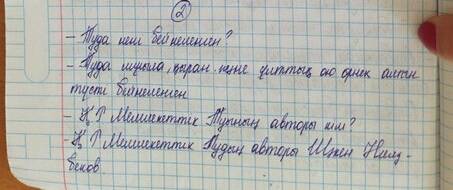 2
- Туда не бейнеленген?
- Туда шұғыла, қыран және ұлттық ою өрнек алтын
түсті бейнеленген
- Қ Р Мемлекеттік Туының авторы кім?
- Қ Р Мемлекеттік Тудың авторы Шәкен Нияз-
беков